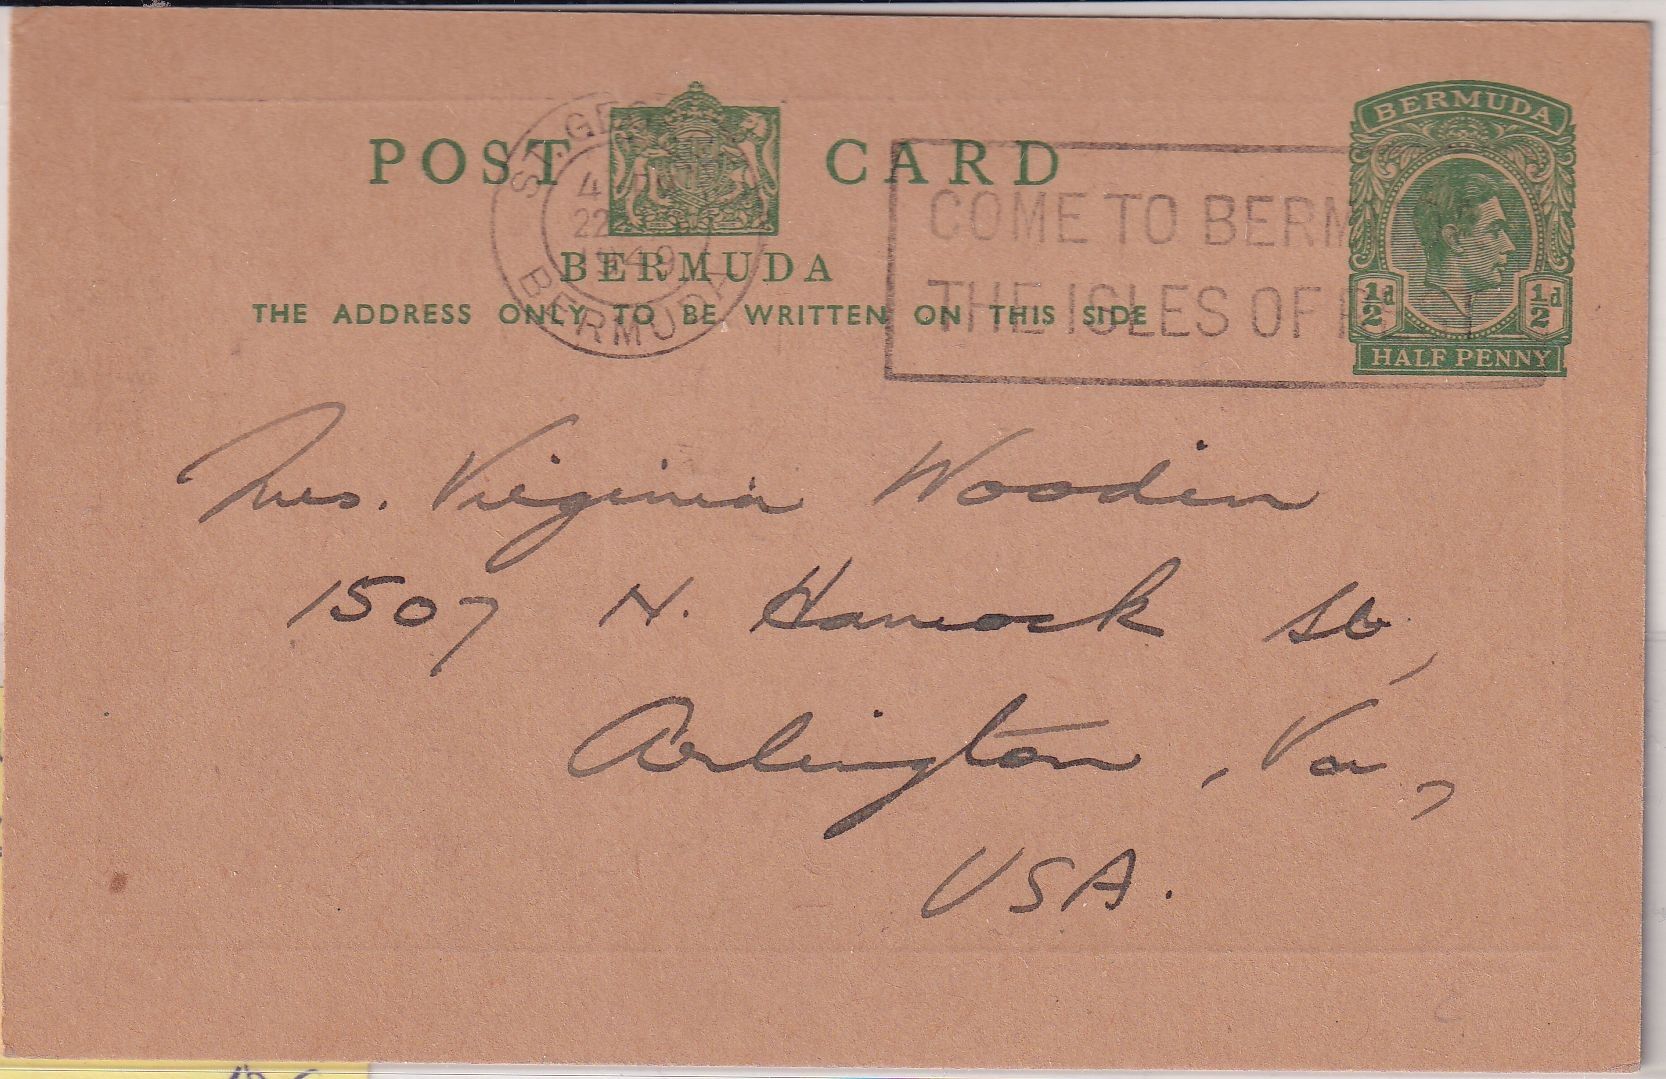 POST CARD
BERMUDA
THE ADDRESS ONLY TO BE WRITTEN ON THIS SIDE
ST. GE
4
22
1949
BERMUDA
COME TO BERM
THE ISLES OF
BERMUDA
½d ½d
HALF PENNY
Mrs. Virginia Wooden
1507 N. Hancock St,
Arlington, Va,
USA.